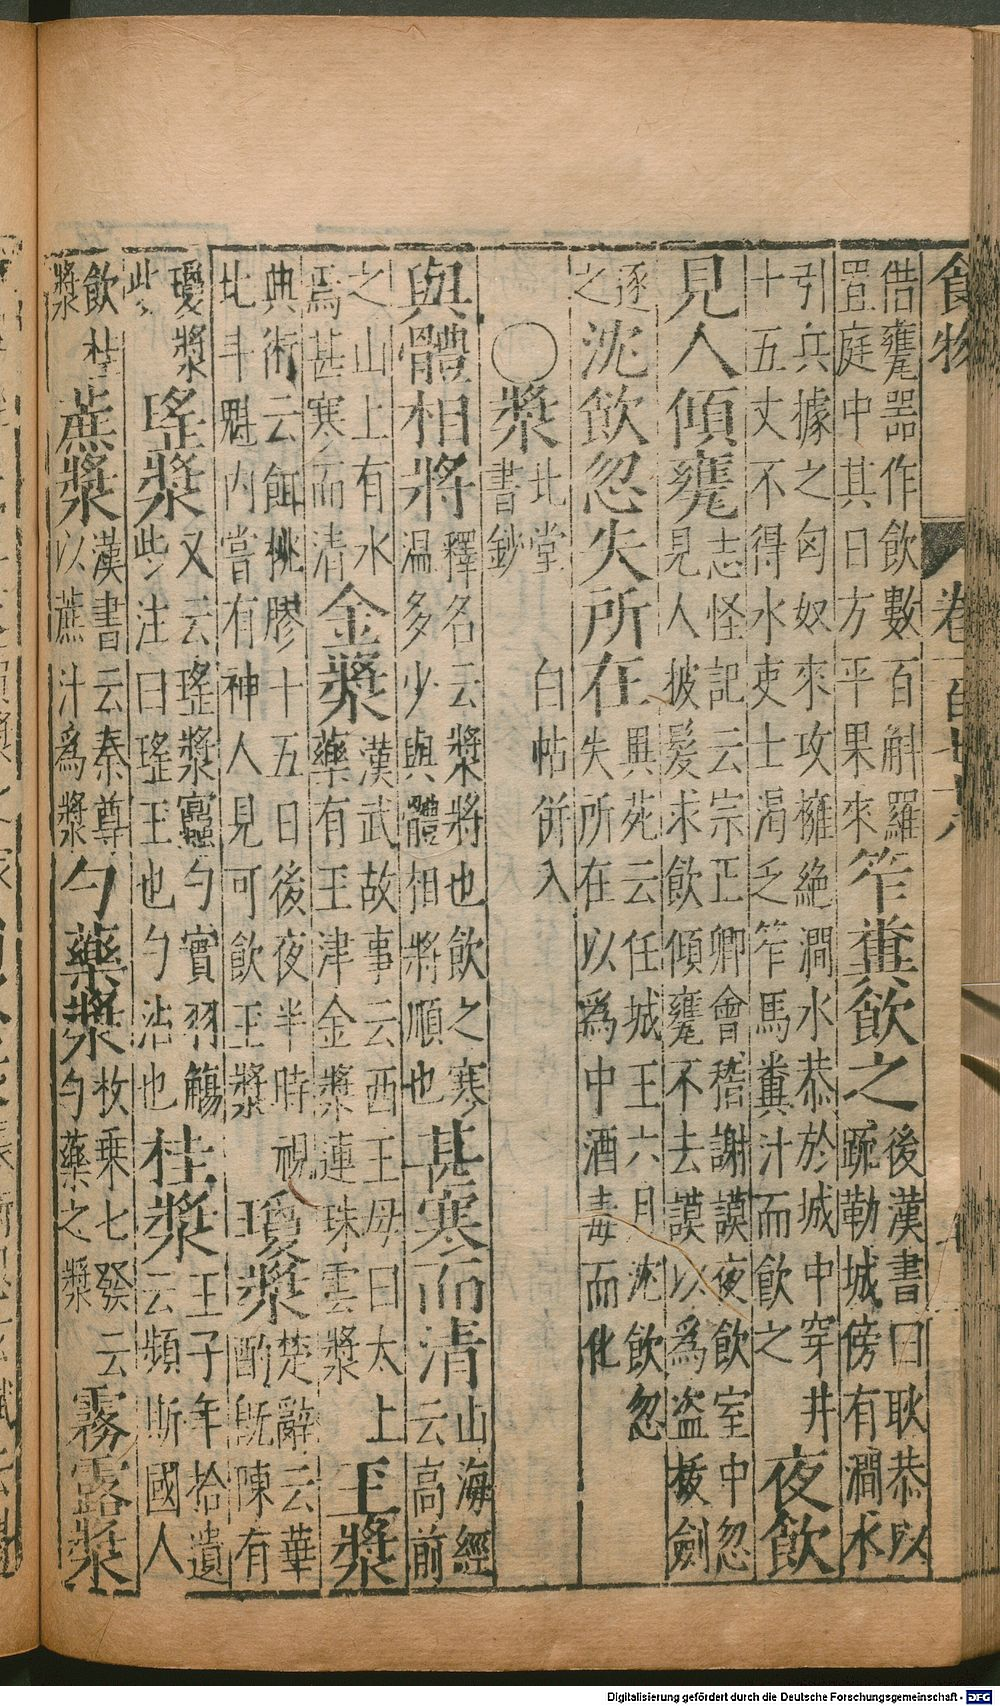 食物 卷一百
借甕器作飲數百斛羅
置庭中其日方平果來
笮糞飲之
後漢書曰耿恭以
疏勒城傍有澗水
引兵據之匈奴來攻擁絕澗水恭於城中穿井
十五丈不得水吏士渴乏笮馬糞汁而飲之
夜飲
見人傾甕
志怪記云宗正卿會稽謝謨夜飲室中忽
見人披髮求飲傾甕不去謨以為盜拔劍
逐
之
沈飲忽失所在
異苑云任城王六月沈飲忽
失所在以為中酒毒而化
○漿
北堂
書鈔
白帖併入
與體相將
釋名云漿將也飲之寒
温多少與體相將順也
甚寒而清
山海經
云高前
之山上有水
焉甚寒而清
金漿
漢武故事云西王母曰太上
藥有玉津金漿連珠雲漿
玉漿
典術云餌桃膠十五日後夜半時視
北斗魁內當有神人見可飲玉漿
瓊漿
楚辭云華
酌既陳有
瓊漿
些
瑤漿
又云瑤漿蜜勺實羽觴
些注曰瑤玉也勺沾也
桂漿
王子年拾遺
云頻斯國人
飲桂
漿
蔗漿
漢書云泰尊
以蔗汁為漿
勺藥漿
枚乗七發云
勺藥之漿
霧露漿
Digitalisierung gefördert durch die Deutsche Forschungsgemeinschaft - DFG